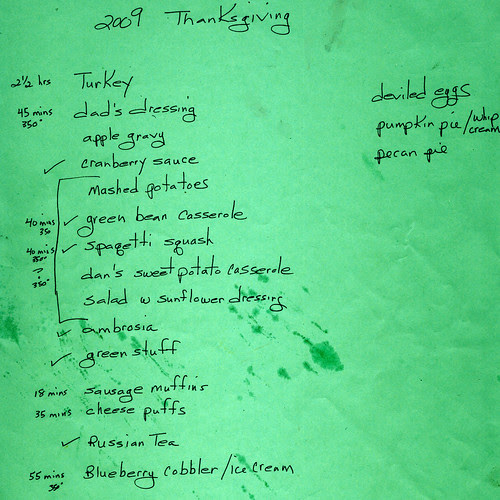 2009 Thanksgiving
2½ hrs Turkey
45 mins dad's dressing
350°
apple gravy
✓ cranberry sauce
Mashed potatoes
40 mins ✓ green bean casserole
350
40 mins ✓ spagetti squash
350°
? dan's sweet potato casserole
350°
salad w sunflower dressing
✓ ambrosia
✓ green stuff
18 mins sausage muffins
35 mins cheese puffs
✓ Russian Tea
55 mins Blueberry cobbler / ice cream
350°
deviled eggs
pumpkin pie / whip cream
pecan pie